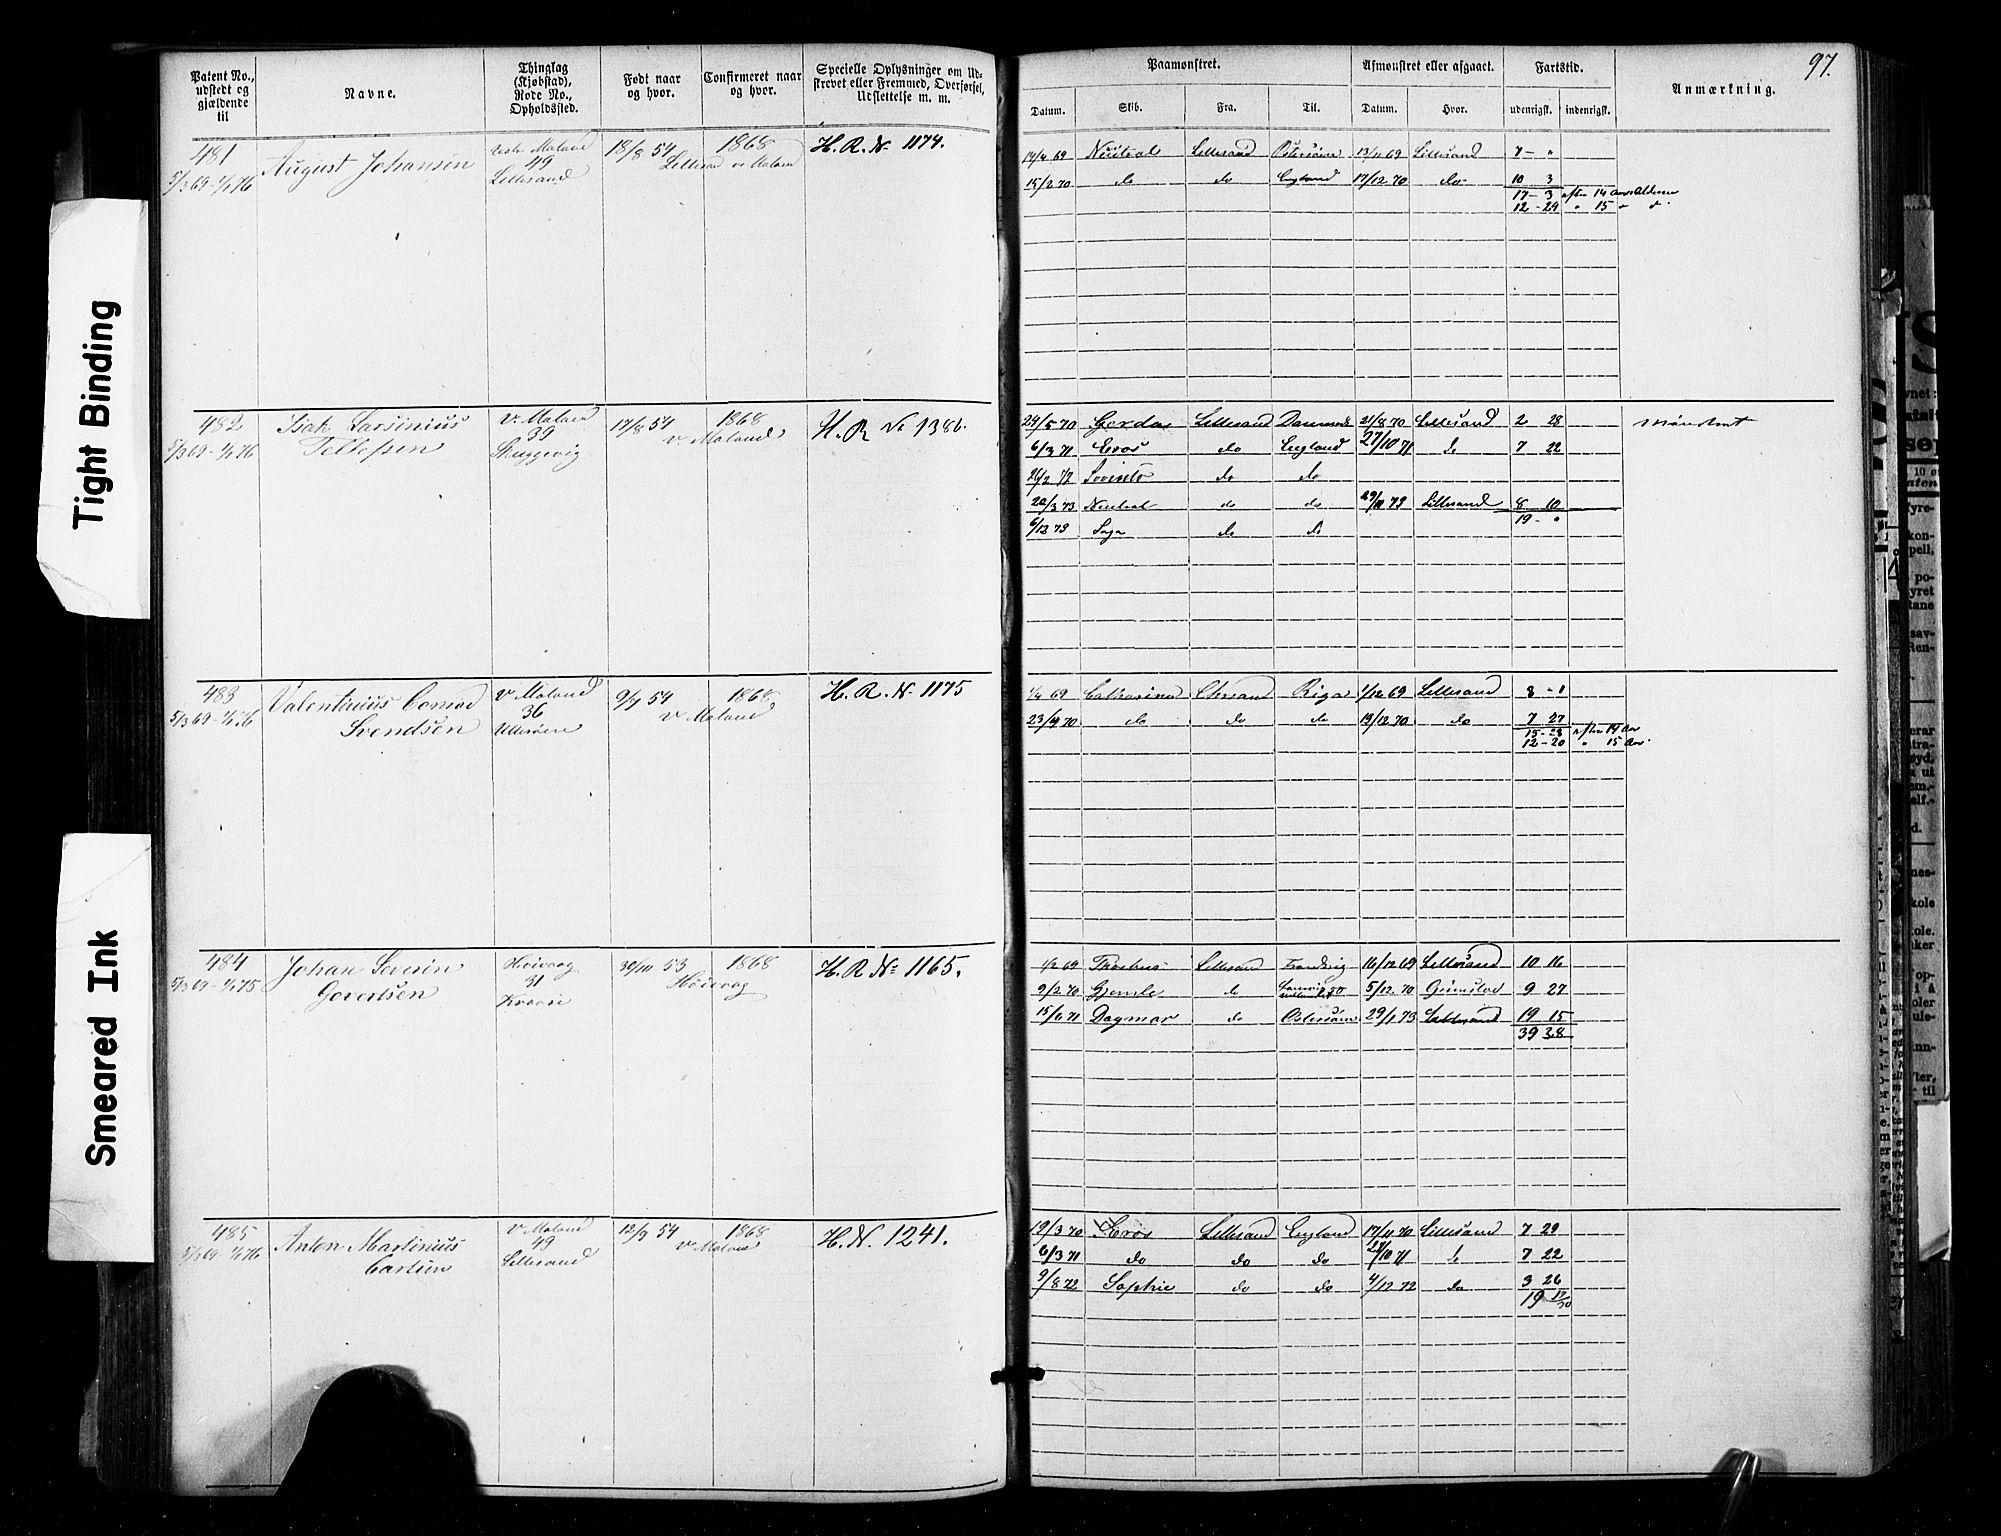 97.
Patent No., udstedt og gjældende til
Navne.
Thinglag (Kjøbstad), Rode No., Opholdssted.
Født naar og hvor.
Confirmeret naar og hvor.
Specielle Oplysninger om Udskrevet eller Fremmed, Overførsel, Udslettelse m. m.
Paamønstret.
Afmønstret eller afgaaet.
Fartstid.
Anmærkning.
Datum. Skib. Fra. Til. Datum. Hvor. udenrigsk. indenrigsk.
481
5/3 69 - 1/1 76
August Johansen
Vestr Moland
49
Lillesand
18/8 54
1868
Lillesand V. Moland
H. R. N. 1174.
14/4 69 Neutral Lillesand Østersøen 13/11 69 Lillesand 7 - "
15/2 70 do do England 17/12 70 do 10 3
17 - 3 efter 14 Aars Alderen
12 - 29 " 15 " d
482
5/3 69 - 1/1 76
Isak Larsinius
Tellefsen
V. Moland
39
Skuggevig
17/8 54
1868
V. Moland
H. R. N. 1386.
24/5 70 Gerda Lillesand Danmark 21/8 70 Lillesand 2 28
6/3 71 Eros do England 27/10 71 do 7 22
26/2 72 do do
20/3 73 Neutral do do 29/11 73 Lillesand 8 10
6/12 73 Saga do do 19 - "
483
5/3 69 - 1/1 76
Valentinius Conrad
Svendsen
V. Moland
36
Ulløsen
9/9 54
1868
V. Moland
H. R. N. 1175
1/4 69 Catharina Chrsand Riga 1/12 69 Lillesand 8 - 1
23/4 70 do do do 19/12 70 do 7 27
15 - 28 efter 14 Aar
12 - 20 " 15 Aar.
484
5/3 69 - 1/1 75
Johan Severin
Gevertsen
Høivaag
31
Kvaase
30/10 53
1868
Høivaag
H. R. N. 1165.
1/2 69 Lillesand 16/12 69 Lillesand 10 16
9/2 70 Gjemle do 5/12 70 Grimstad 9 27
15/6 71 Dagmar do Østersøen 29/1 73 Lillesand 19 15
39 28
485
5/3 69 - 1/1 76
Anton Martinius
Carlsen
V. Moland
49
Lillesand
12/9 54
1868
V. Moland
H. N. 1241.
19/3 70 Eros Lillesand England 17/11 70 Lillesand 7 29
6/3 71 do do do 27/10 71 do 7 22
9/8 72 Sophie do do 4/12 72 do 3 26
19 17/30
Tight Binding
Smeared Ink